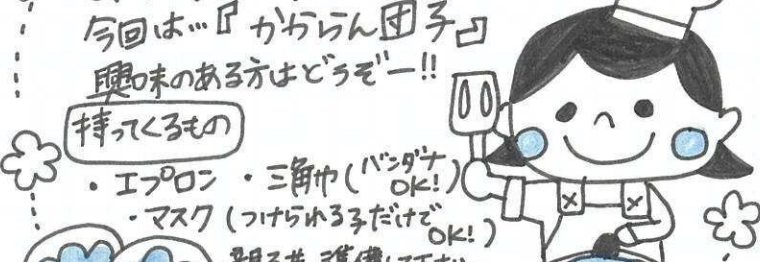 今回は…『かからん団子』
興味のある方はどうぞー!!
持ってくるもの
・エプロン ・三角巾(バンダナOK!)
・マスク(つけられる子だけでOK!)